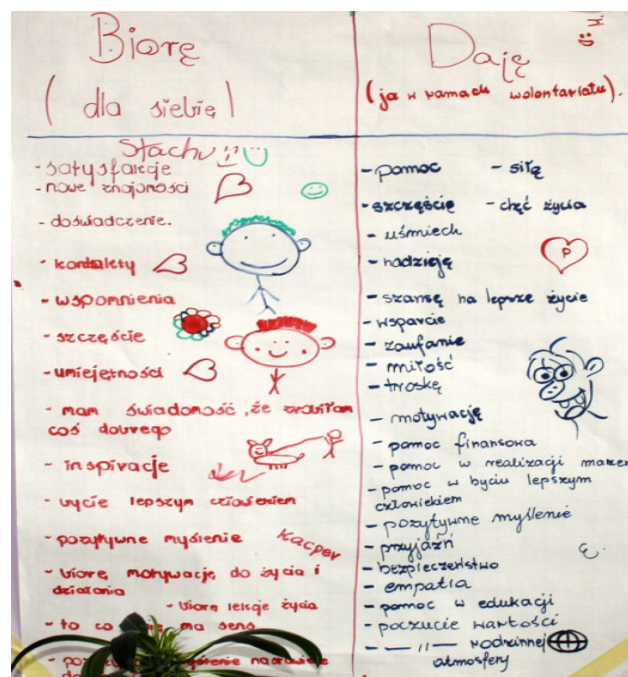 Biorę
(dla siebię)
Stachu
- satysfakcje
- nowe znajomości
- doświadczenie.
- kontakty
- wspomnienia
- szczęście
- umiejętności
- mam świadomość, że zrobiłam
coś dobrego
- inspiracje
- bycie lepszym człowiekiem
- pozytywne myślenie
Kacper
- biorę motywację do życia i
działania
- biorę lekcje życia
- to co ma sens
Daję
(ja w ramach wolontariatu).
- pomoc - siłę
- szczęście - chęć życia
- uśmiech
- nadzieję
P
- szansę na lepsze życie
- wsparcie
- zaufanie
- miłość
- troskę
- motywację
- pomoc finansowa
- pomoc w realizacji marzeń
- pomoc w byciu lepszym
człowiekiem
- pozytywne myślenie
- przyjaźń
- bezpieczeństwo
- empatia
- pomoc w edukacji
- poczucie wartości
- — 11 — rodzinnej
atmosfery